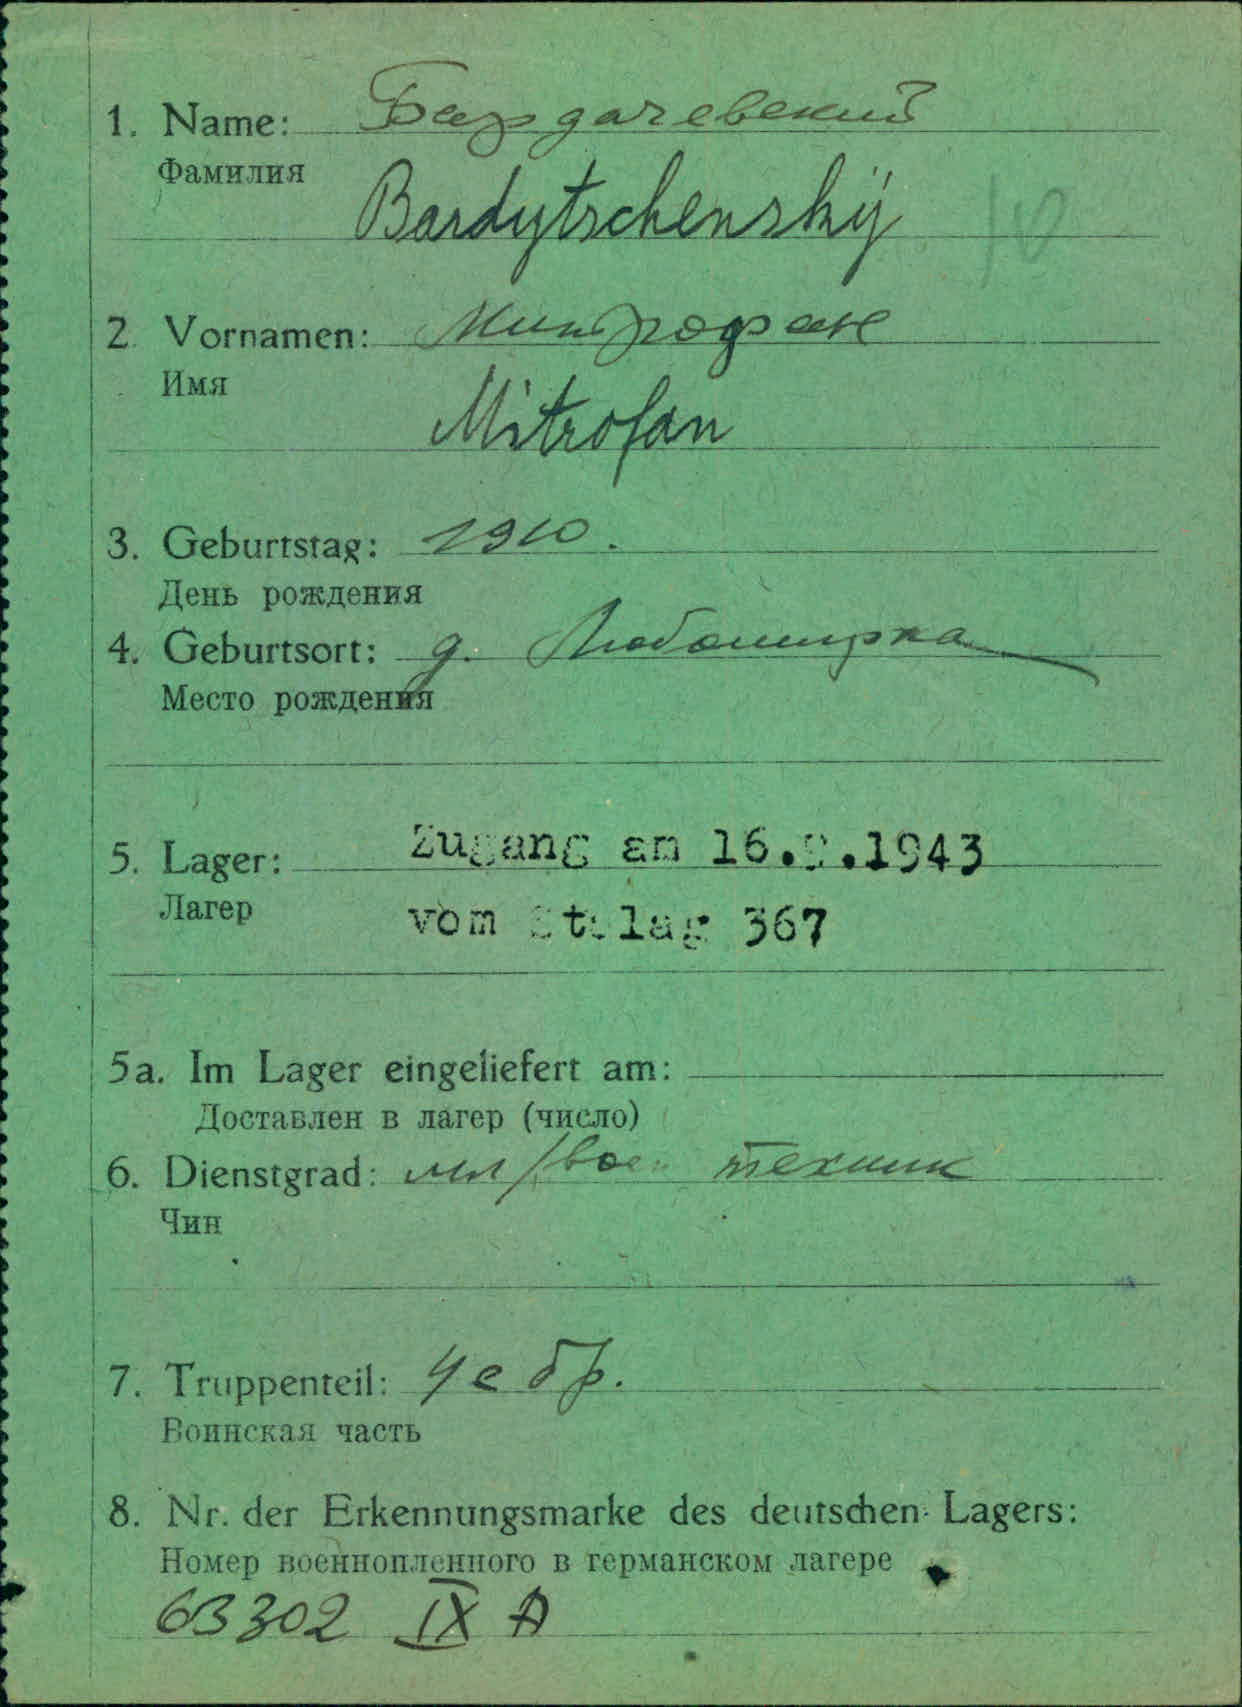 1. Name: Бардачевский
Фамилия
Bardytschenskij
10
2. Vornamen: Митрофан
Имя
Mitrofan
3. Geburtstag: 1910.
День рождения
4. Geburtsort: д. Любомирка
Место рождения
5. Lager: Zugang am 16.9.1943
Лагер
vom Stalag 367
5a. Im Lager eingeliefert am:
Доставлен в лагер (число)
6. Dienstgrad: мл/воен техник
Чин
7. Truppenteil: бр.
Воинская часть
8. Nr. der Erkennungsmarke des deutschen Lagers:
Номер военнопленного в германском лагере
63302 IX A